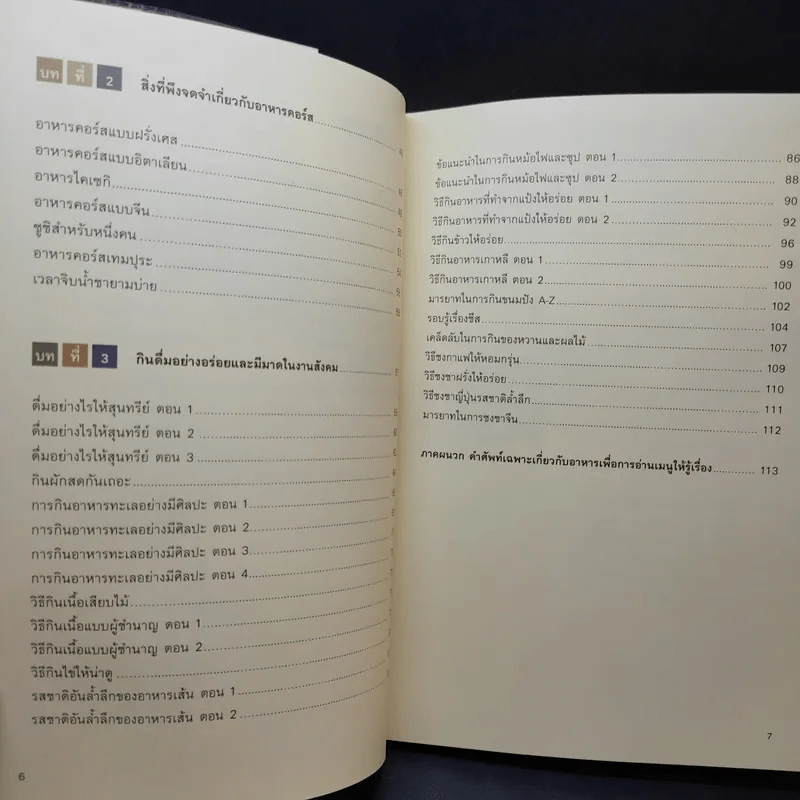 บทที่ 2 สิ่งที่พึงจดจำเกี่ยวกับอาหารคอร์ส
อาหารคอร์สแบบฝรั่งเศส
อาหารคอร์สแบบอิตาเลียน
อาหารไคเซกิ
อาหารคอร์สแบบจีน
ซูชิสำหรับหนึ่งคน
อาหารคอร์สเทมปุระ
เวลาจิบน้ำชายามบ่าย
บทที่ 3 กินดื่มอย่างอร่อยและมีมาดในงานสังคม
ดื่มอย่างไรให้สุนทรีย์ ตอน 1
ดื่มอย่างไรให้สุนทรีย์ ตอน 2
ดื่มอย่างไรให้สุนทรีย์ ตอน 3
กินผักสดกันเถอะ
การกินอาหารทะเลอย่างมีศิลปะ ตอน 1
การกินอาหารทะเลอย่างมีศิลปะ ตอน 2
การกินอาหารทะเลอย่างมีศิลปะ ตอน 3
การกินอาหารทะเลอย่างมีศิลปะ ตอน 4
วิธีกินเนื้อเสียบไม้
วิธีกินเนื้อแบบผู้ชำนาญ ตอน 1
วิธีกินเนื้อแบบผู้ชำนาญ ตอน 2
วิธีกินไข่ให้น่าดู
รสชาติอันล้ำลึกของอาหารเส้น ตอน 1
รสชาติอันล้ำลึกของอาหารเส้น ตอน 2
6
ข้อแนะนำในการกินหม้อไฟและซุป ตอน 1 86
ข้อแนะนำในการกินหม้อไฟและซุป ตอน 2 88
วิธีกินอาหารที่ทำจากแป้งให้อร่อย ตอน 1 90
วิธีกินอาหารที่ทำจากแป้งให้อร่อย ตอน 2 92
วิธีกินข้าวให้อร่อย 96
วิธีกินอาหารเกาหลี ตอน 1 99
วิธีกินอาหารเกาหลี ตอน 2 100
มารยาทในการกินขนมปัง A-Z 102
รอบรู้เรื่องชีส 104
เคล็ดลับในการกินของหวานและผลไม้ 107
วิธีชงกาแฟให้หอมกรุ่น 109
วิธีชงชาฝรั่งให้อร่อย 110
วิธีชงชาญี่ปุ่นรสชาติล้ำลึก 111
มารยาทในการชงชาจีน 112
ภาคผนวก คำศัพท์เฉพาะเกี่ยวกับอาหารเพื่อการอ่านเมนูให้รู้เรื่อง 113
7